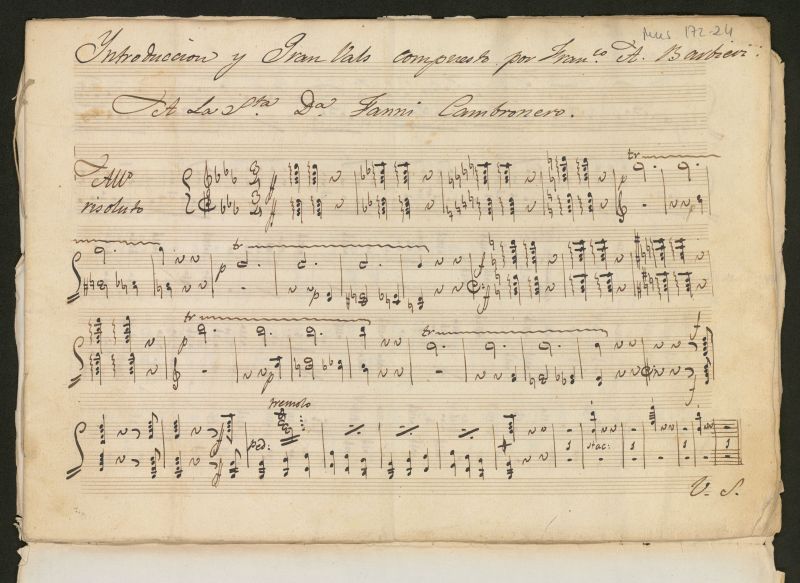 Mus 172-24
Introduccion y Gran Vals compuesto por Fran.co A. Barbieri.
A La S.rta D.a Fanni Cambronero.
All.o
risoluto
tr
tr
tr
tr
tremolo
ped:
stac:
V. S.